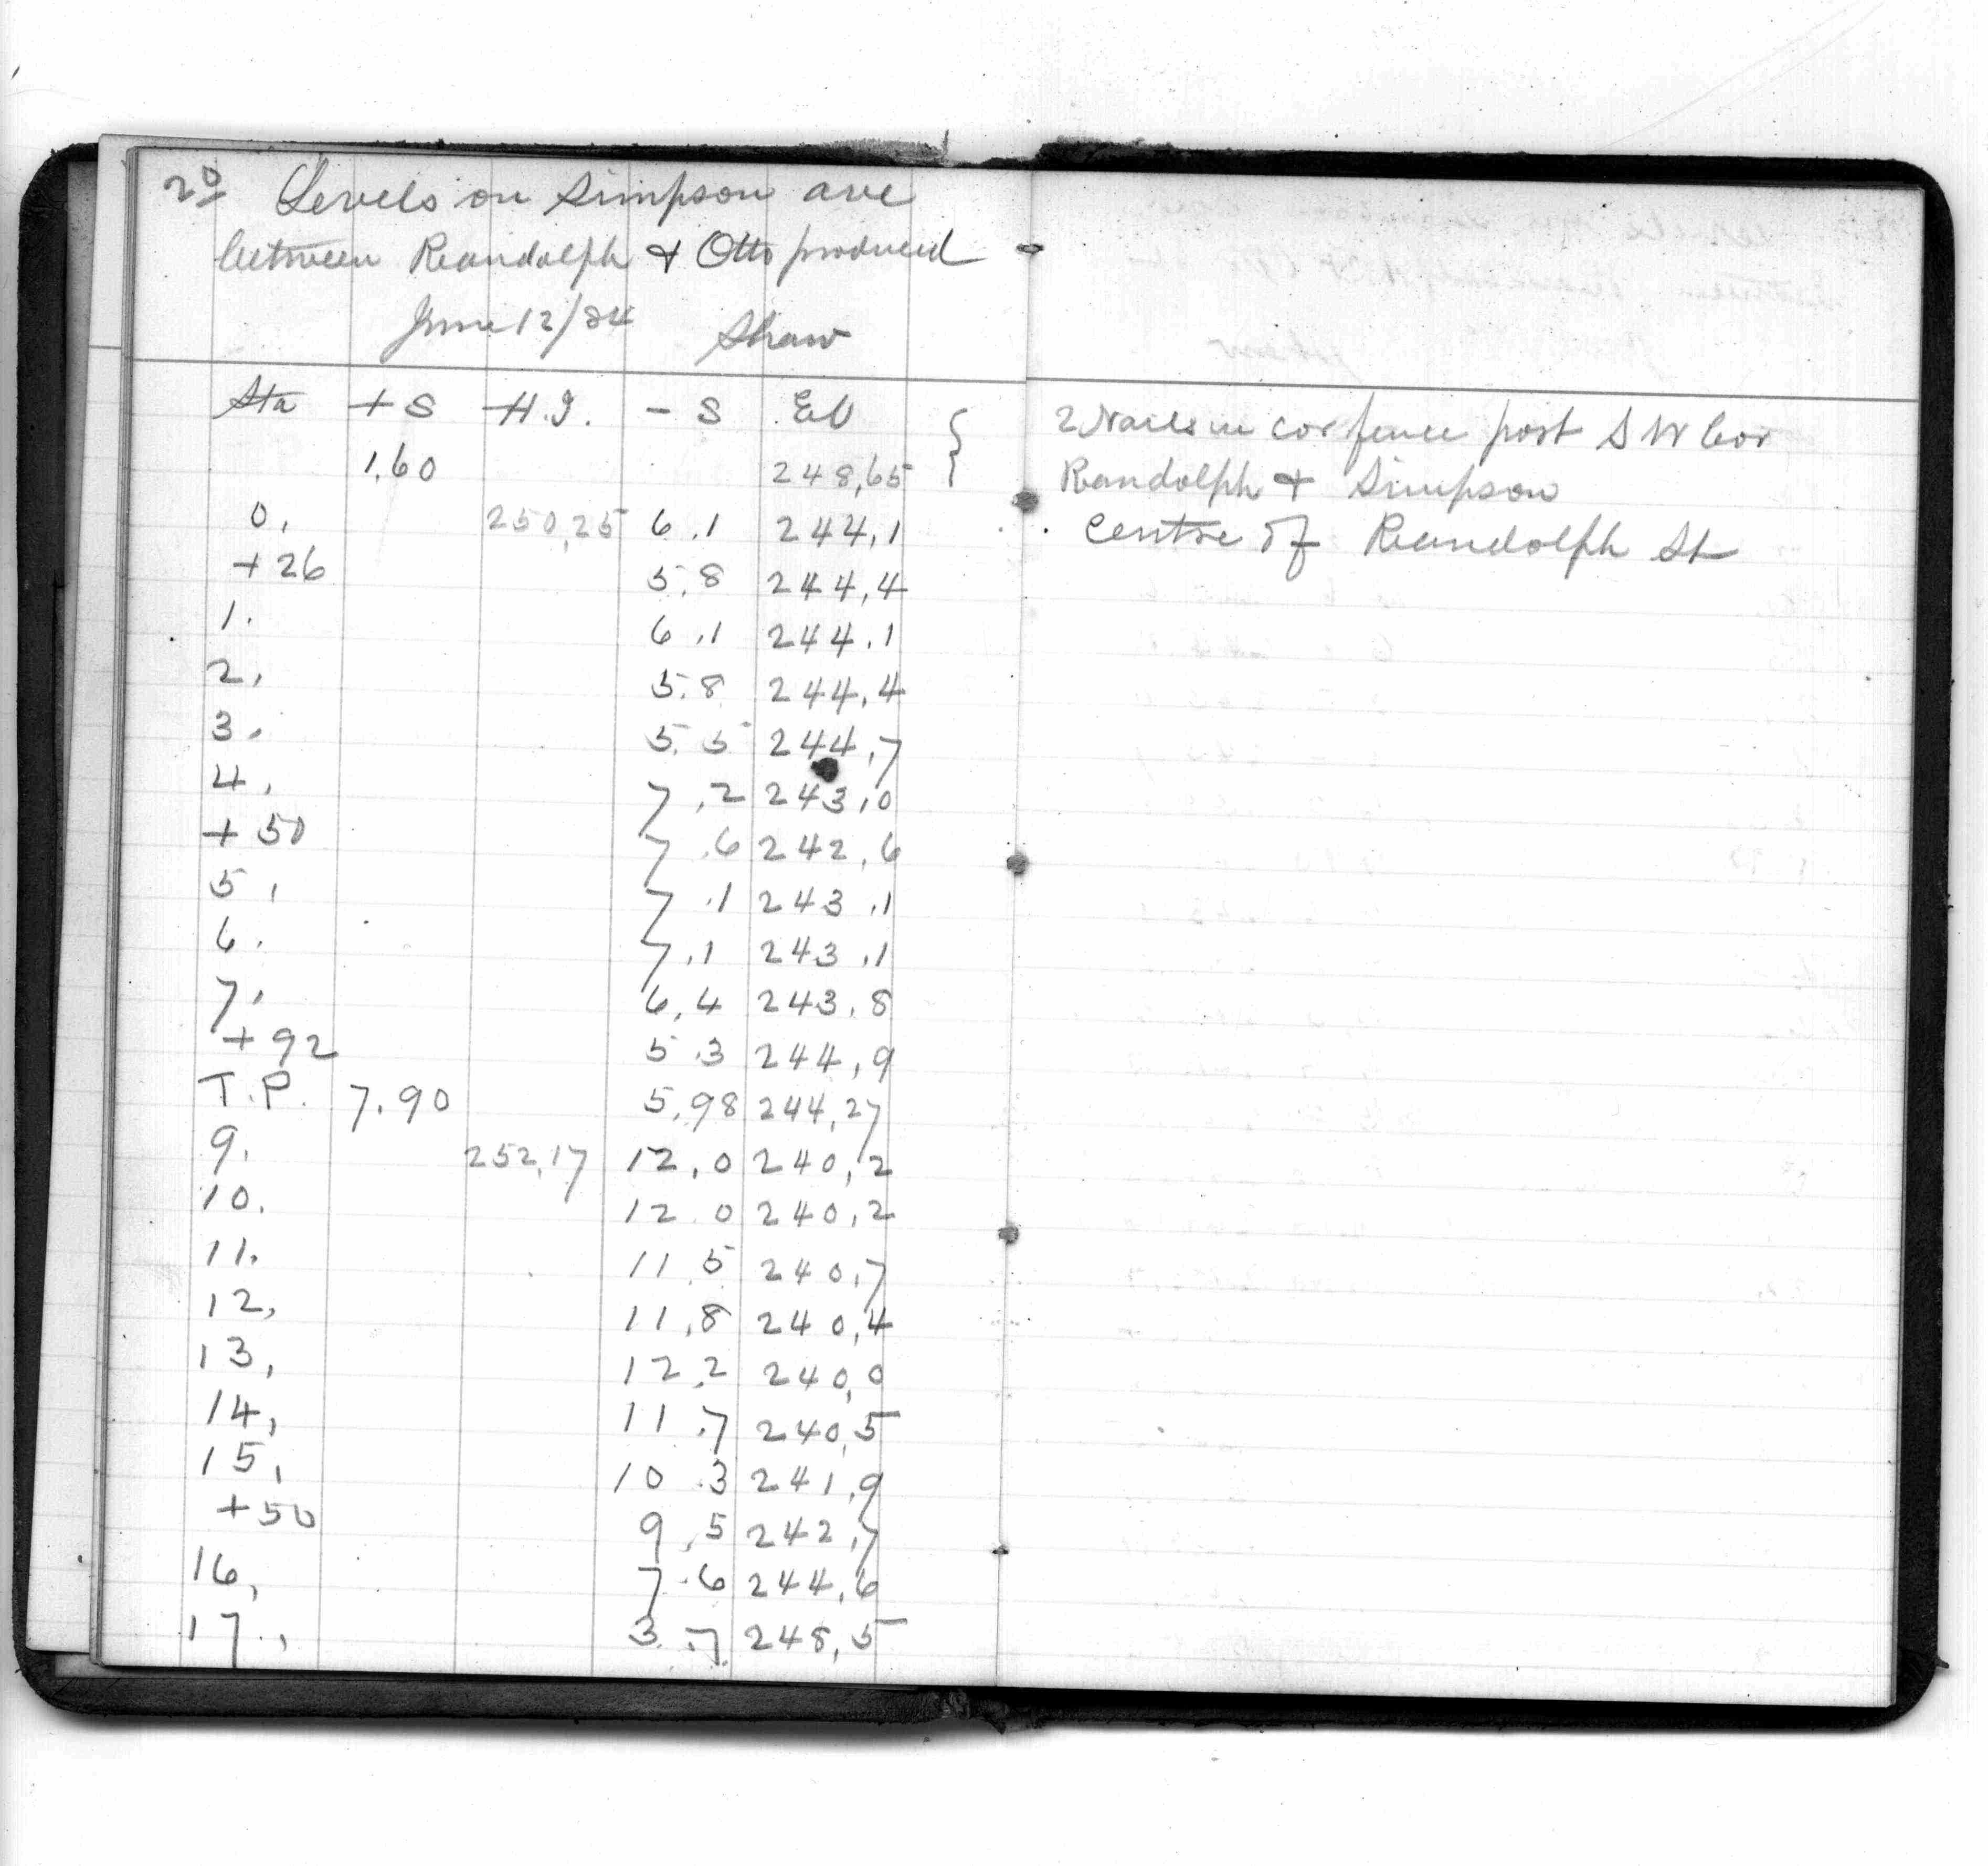 20 Levels on Simpson ave
between Randolph + Otto produced
June 12/84 Shaw
Sta + S H.I. - S El
1.60 248,65 { 2 Nails in cor fence post S W Cor
Randolph + Simpson
0, 250,25 6.1 244,1 Centre of Randolph St
+26 5.8 244,4
1. 6.1 244.1
2, 5.8 244,4
3. 5.5 244,7
4, 7,2 243,0
+50 7.6 242,6
5, 7.1 243.1
6. 7.1 243.1
7, 6,4 243,8
+92 5.3 244,9
T.P. 7.90 5,98 244,27
9. 252,17 12,0 240,2
10. 12 0 240,2
11. 11.5 240,7
12, 11,8 240,4
13, 12,2 240,0
14, 11.7 240,5
15, 10.3 241,9
+50 9,5 242,7
16, 7.6 244,6
17., 3.7 248,5